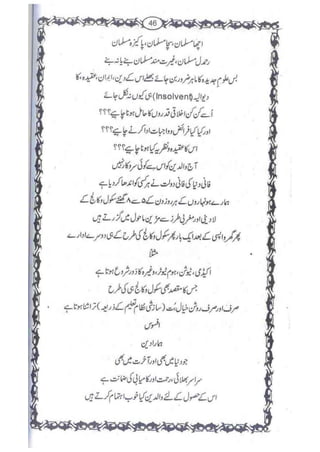 46
اچھا مسلمان، سچا مسلمان، پاکیزہ مسلمان
رحمدل مسلمان، غیرت مند مسلمان بنے یا نہ بنے
بس علوم جدیدہ کا ماہر ضرور بن جائے بھلے اس کے دین، ایمان، عقیدہ کا
دیوالیہ (Insolvent) ہی کیوں نہ نکل جائے
اُسے کن کن اخلاقی قدروں کا حامل ہونا چاہیے؟؟؟
اور کیا کیا فرائض و واجبات ادا کرنے چاہیے؟؟؟
اس کا عقیدہ و نظریہ کیا ہونا چاہیے؟؟؟
آج والدین کو اس سے کوئی سروکار نہیں
فانی دنیا کی فانی دولت نے ہر کسی کو اندھا کر دیا ہے
ہمارے ہونہاروں کے ہر روز ان کے ۵ سے ۸ گھنٹے سکول و کالج کے
لادینی اور مغربی طرز سے مزین ماحول میں گزرتے ہیں
پھر گھر واپسی کے بعد ایک بار پھر سکول و کالج کی طرح کے ہی دوسرے ادارے
مثلاً
اکیڈمی، ٹیوشن، ہوم ٹیوٹر، وغیرہ کا دَور شروع ہوتا ہے
جس کا مقصد بھی سکول و کالج ہی کی طرح
صرف اور صرف روشن خیال بُت (سازشی نظام تعلیم کے ذریعہ) تراشنا ہوتا ہے
افسوس
ہمارا دین
جو دنیا میں بھی اور آخرت میں بھی
سراسر بھلائی، رحمت اور کامیابی کی ضمانت ہے
اس کے حصول کے لئے والدین کیا خوب اہتمام کرتے ہیں